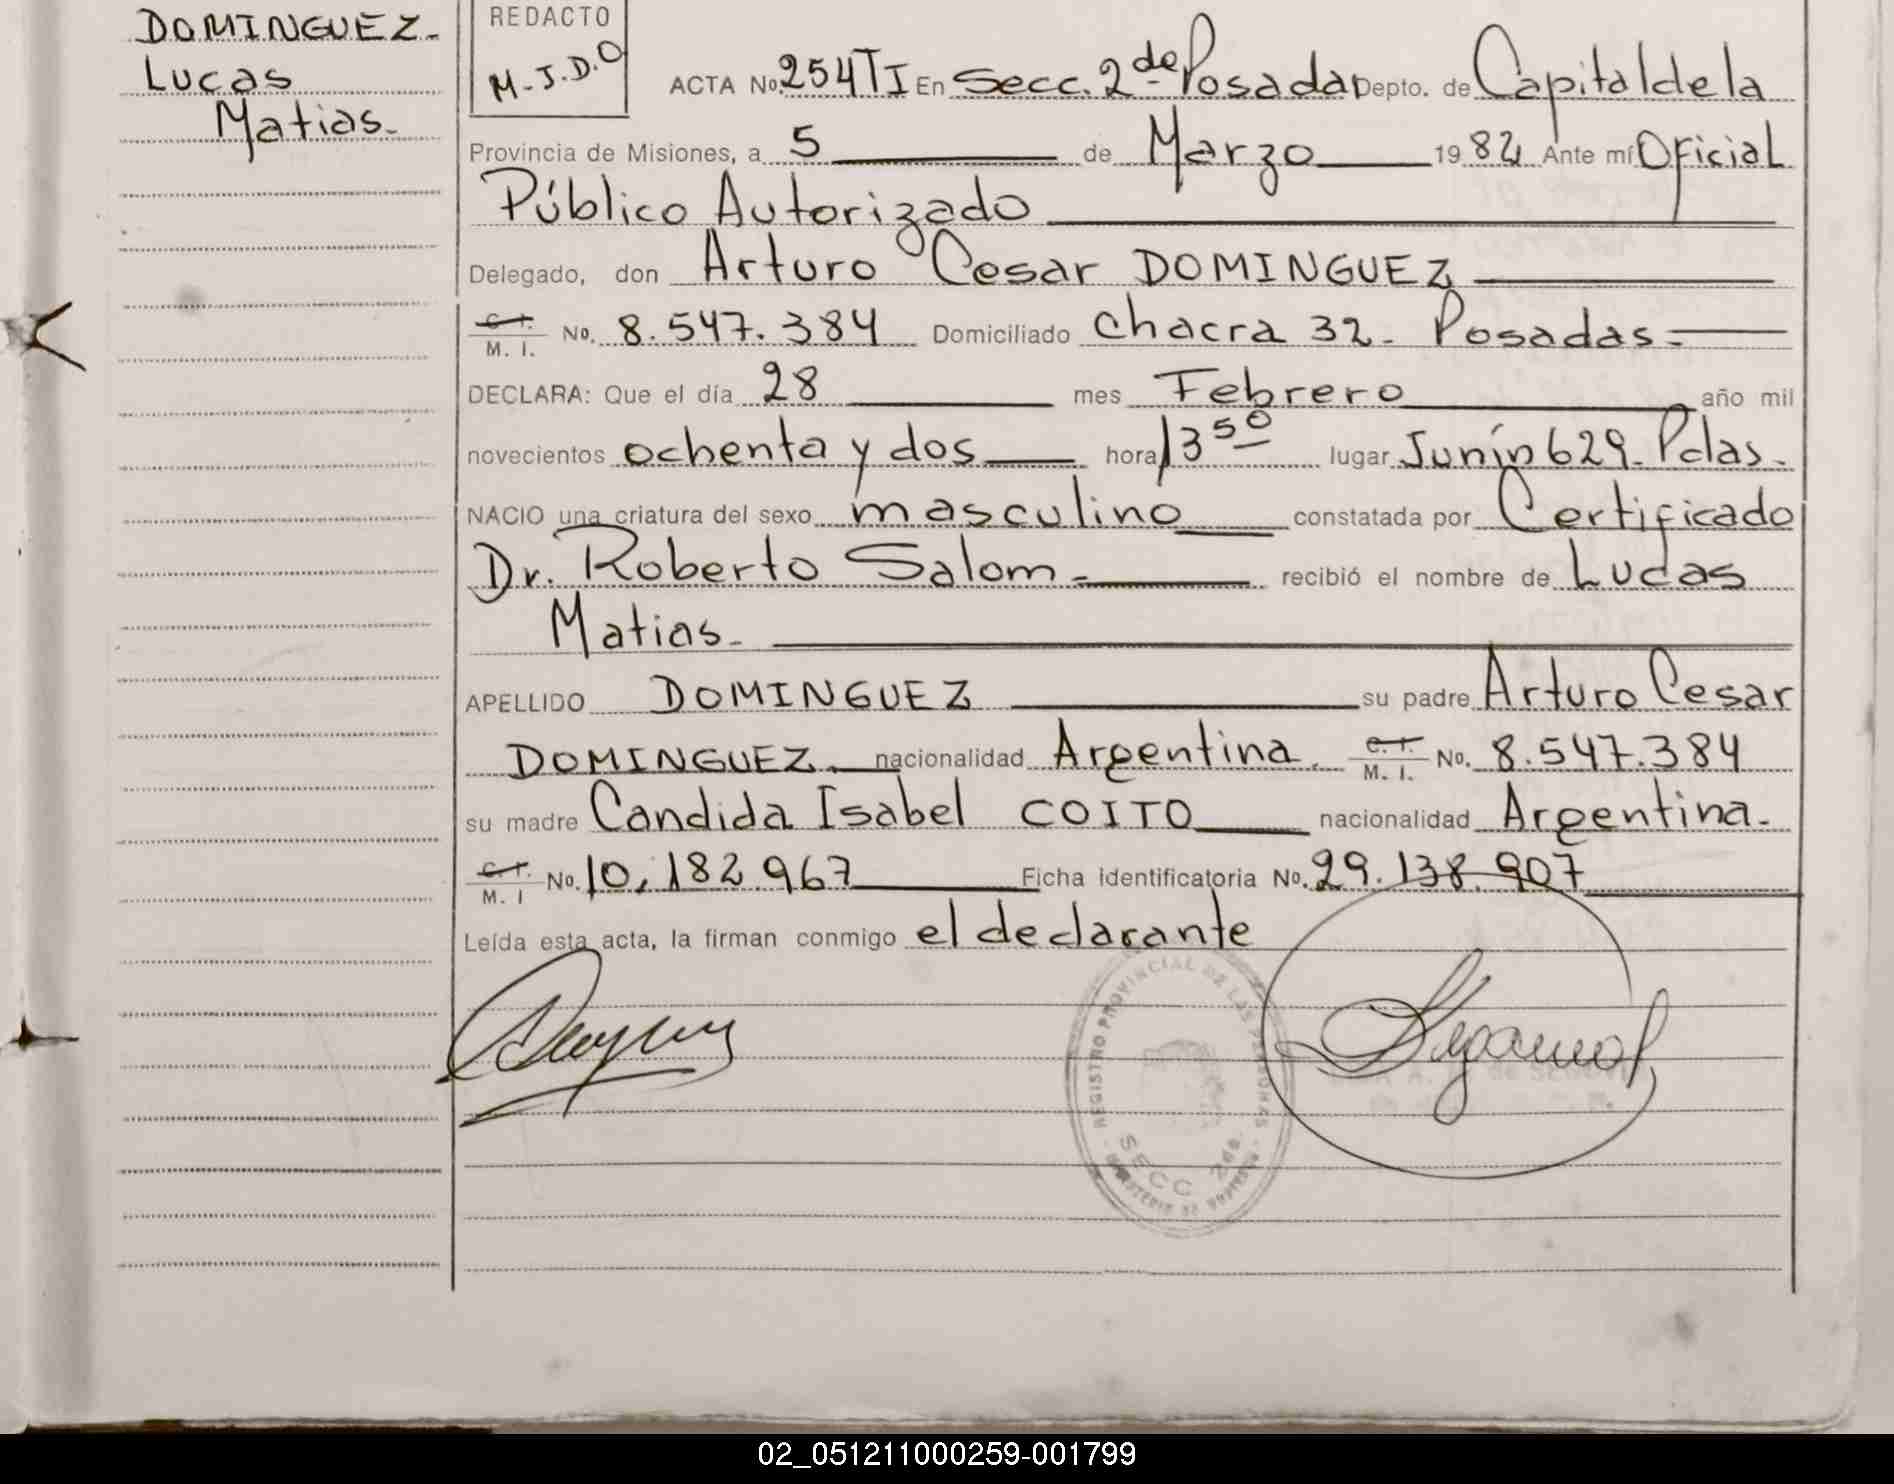 DOMINGUEZ-
Lucas
Matias-
REDACTO
M-J.D.O
ACTA No. 254 TI En Secc. 2da Posadas Depto. de Capital de la
Provincia de Misiones, a 5 de Marzo 1982 Ante mí Oficial
Público Autorizado
Delegado, don Arturo Cesar DOMINGUEZ
C.I. M. I. No. 8.547.384 Domiciliado Chacra 32- Posadas-
DECLARA: Que el día 28 mes Febrero año mil
novecientos ochenta y dos hora 13 50 lugar Junín 629- Pdas-
NACIO una criatura del sexo masculino constatada por Certificado
Dr. Roberto Salom- recibió el nombre de Lucas
Matias-
APELLIDO DOMINGUEZ su padre Arturo Cesar
DOMINGUEZ- nacionalidad Argentina. C.I. M. I. No. 8.547.384
su madre Candida Isabel COITO nacionalidad Argentina-
C.I. M. I No. 10.182.967 Ficha identificatoria No. 29.138.907
Leída esta acta, la firman conmigo el declarante
REGISTRO PROVINCIAL DE LAS PERSONAS
SECC 2da
02_051211000259-001799